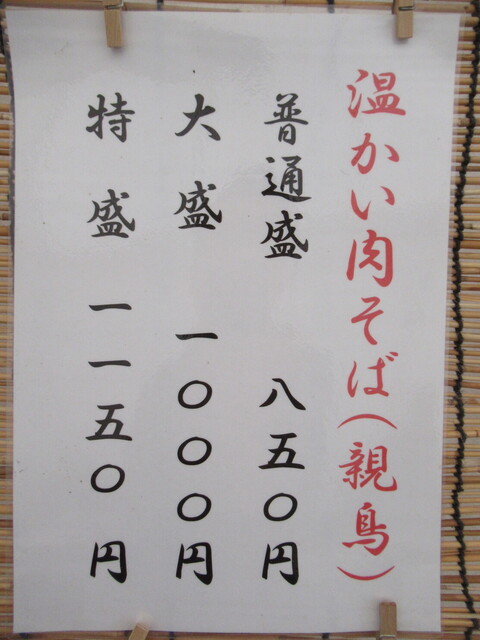 温かい肉そば(親鳥)
普通盛 八五〇円
大盛 一〇〇〇円
特盛 一一五〇円